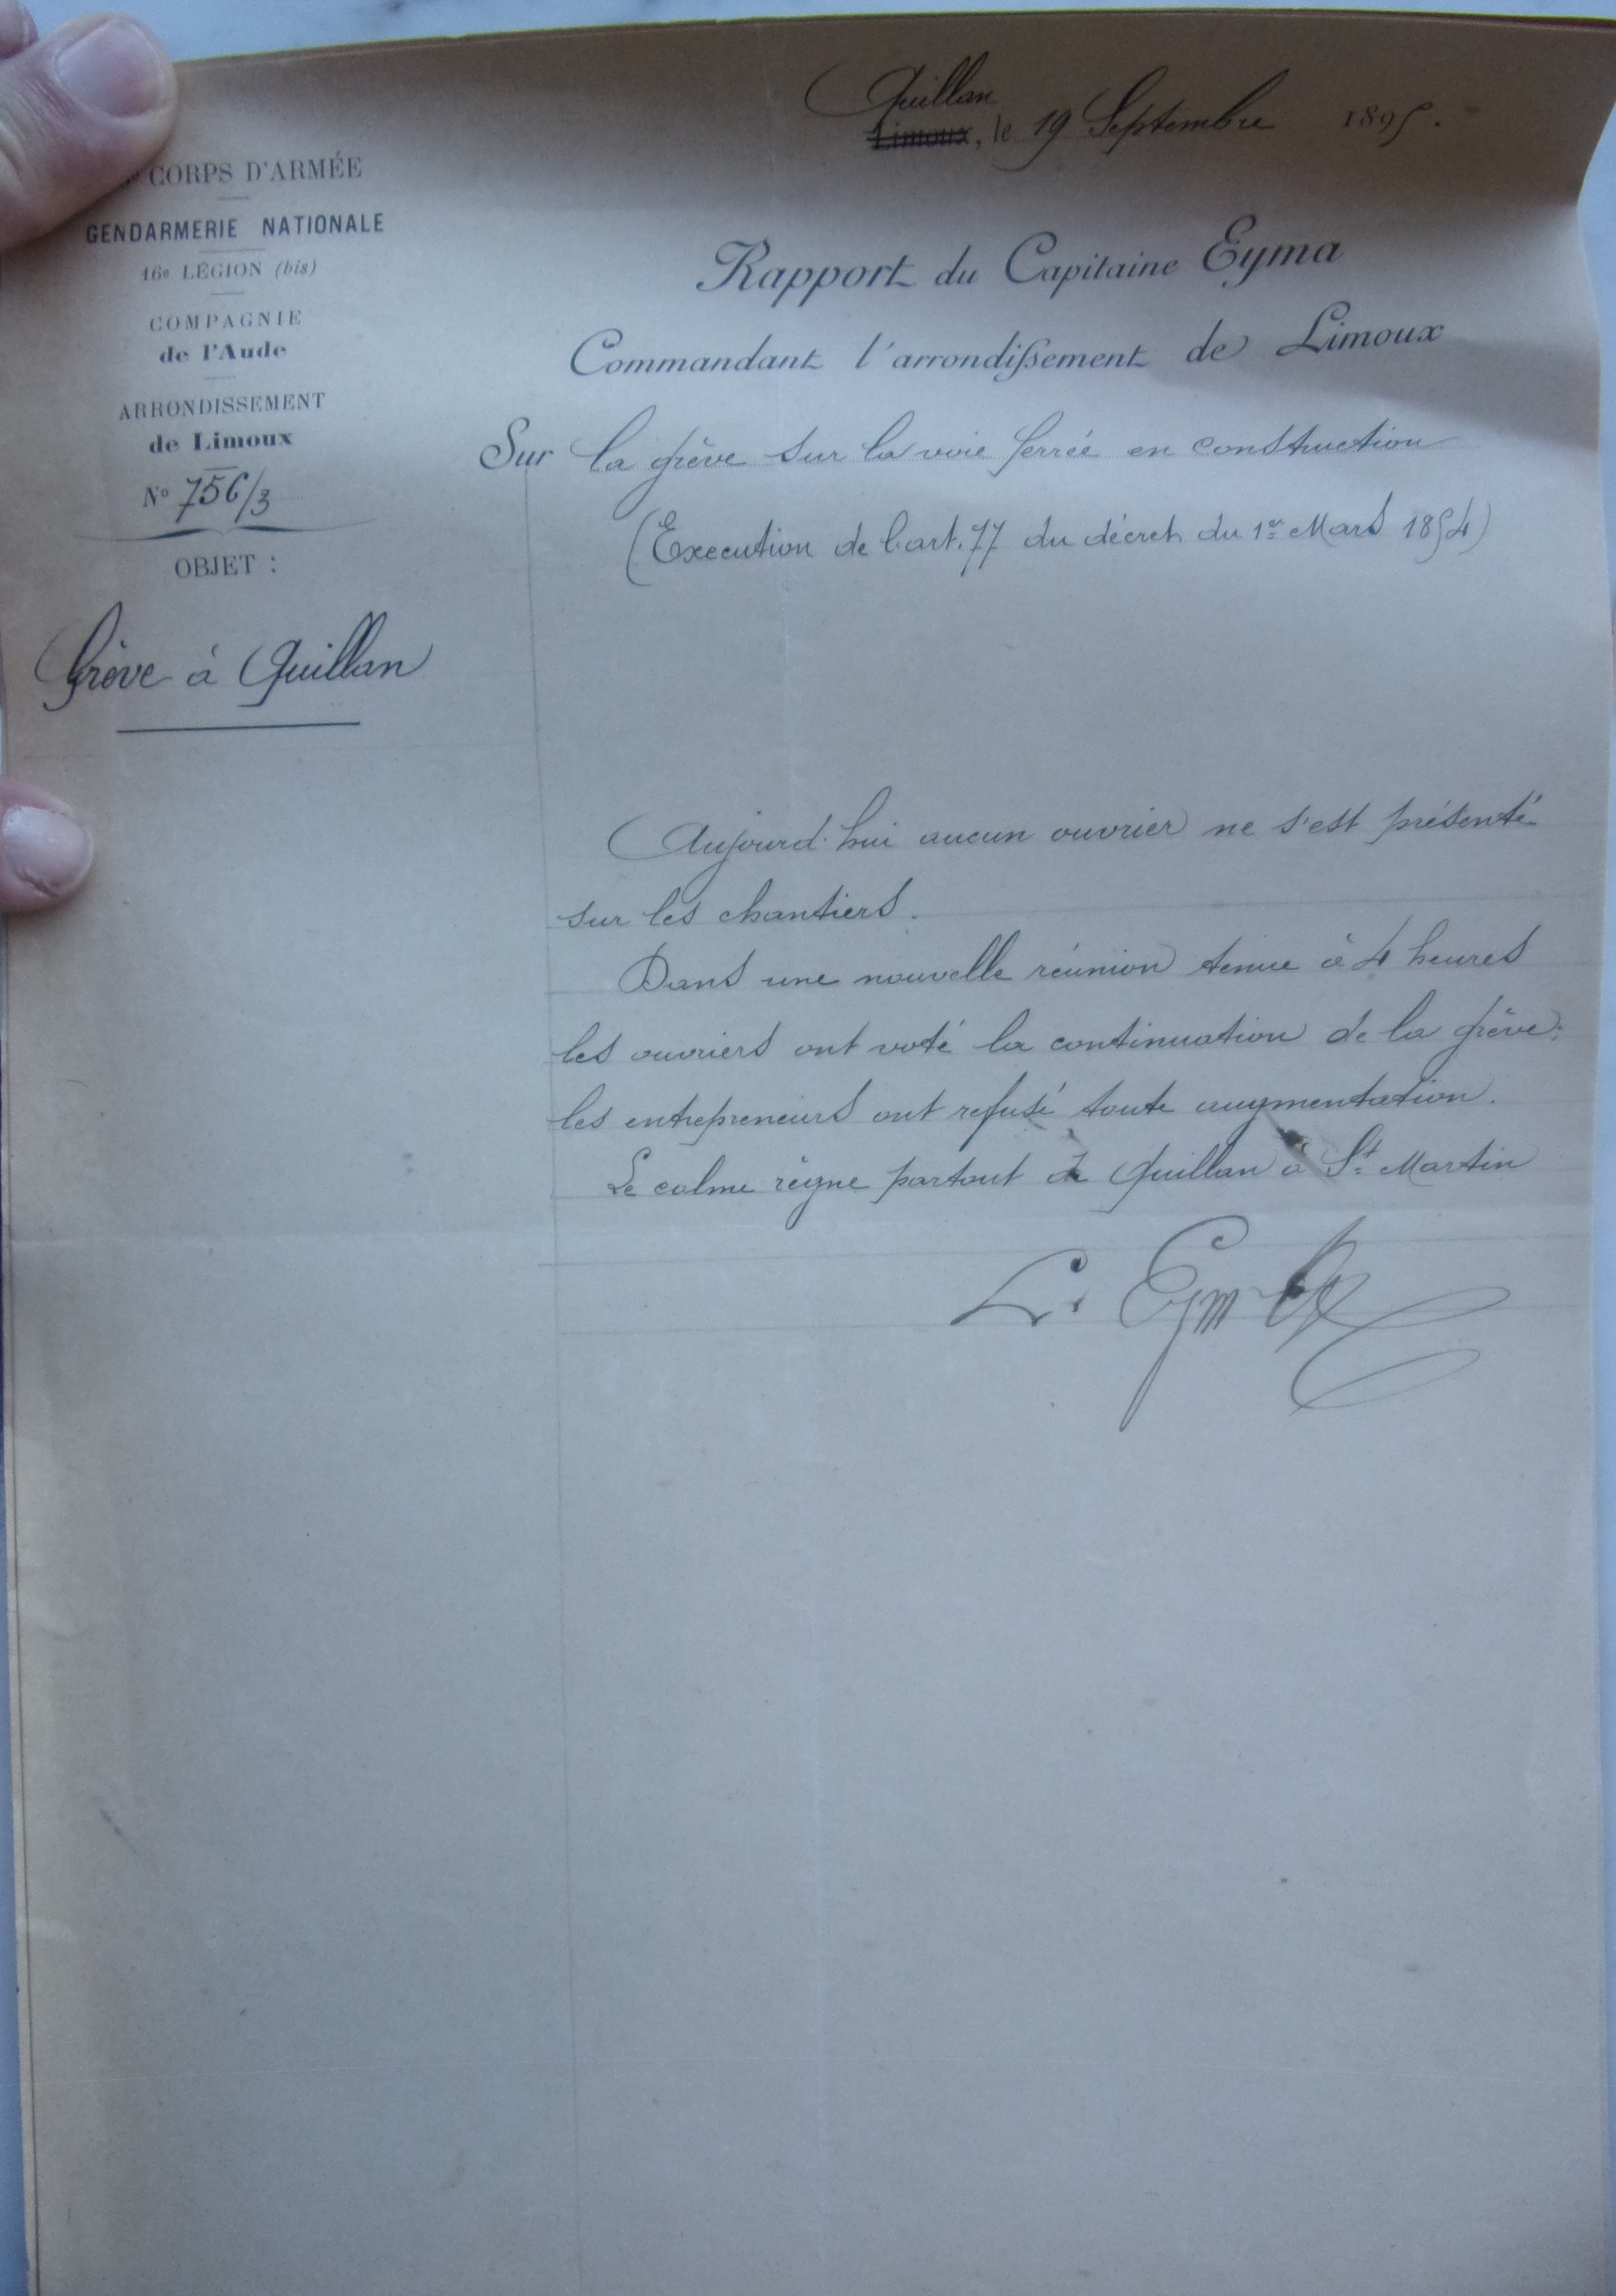 Quillan
Limoux, le 19 Septembre 1895.
CORPS D'ARMÉE
GENDARMERIE NATIONALE
16e LÉGION (bis)
COMPAGNIE
de l'Aude
ARRONDISSEMENT
de Limoux
No 756/3
OBJET :
Grève à Quillan
Rapport du Capitaine Eyma
Commandant l'arrondissement de Limoux
Sur la grève sur la voie ferrée en construction
(Execution de l'art. 77 du décret du 1er Mars 1854)
Aujourd'hui aucun ouvrier ne s'est présenté
sur les chantiers.
Dans une nouvelle réunion tenue à 4 heures
les ouvriers ont voté la continuation de la grève:
les entrepreneurs ont refusé toute augmentation.
Le calme règne partout de Quillan à St Martin
L. Eyma